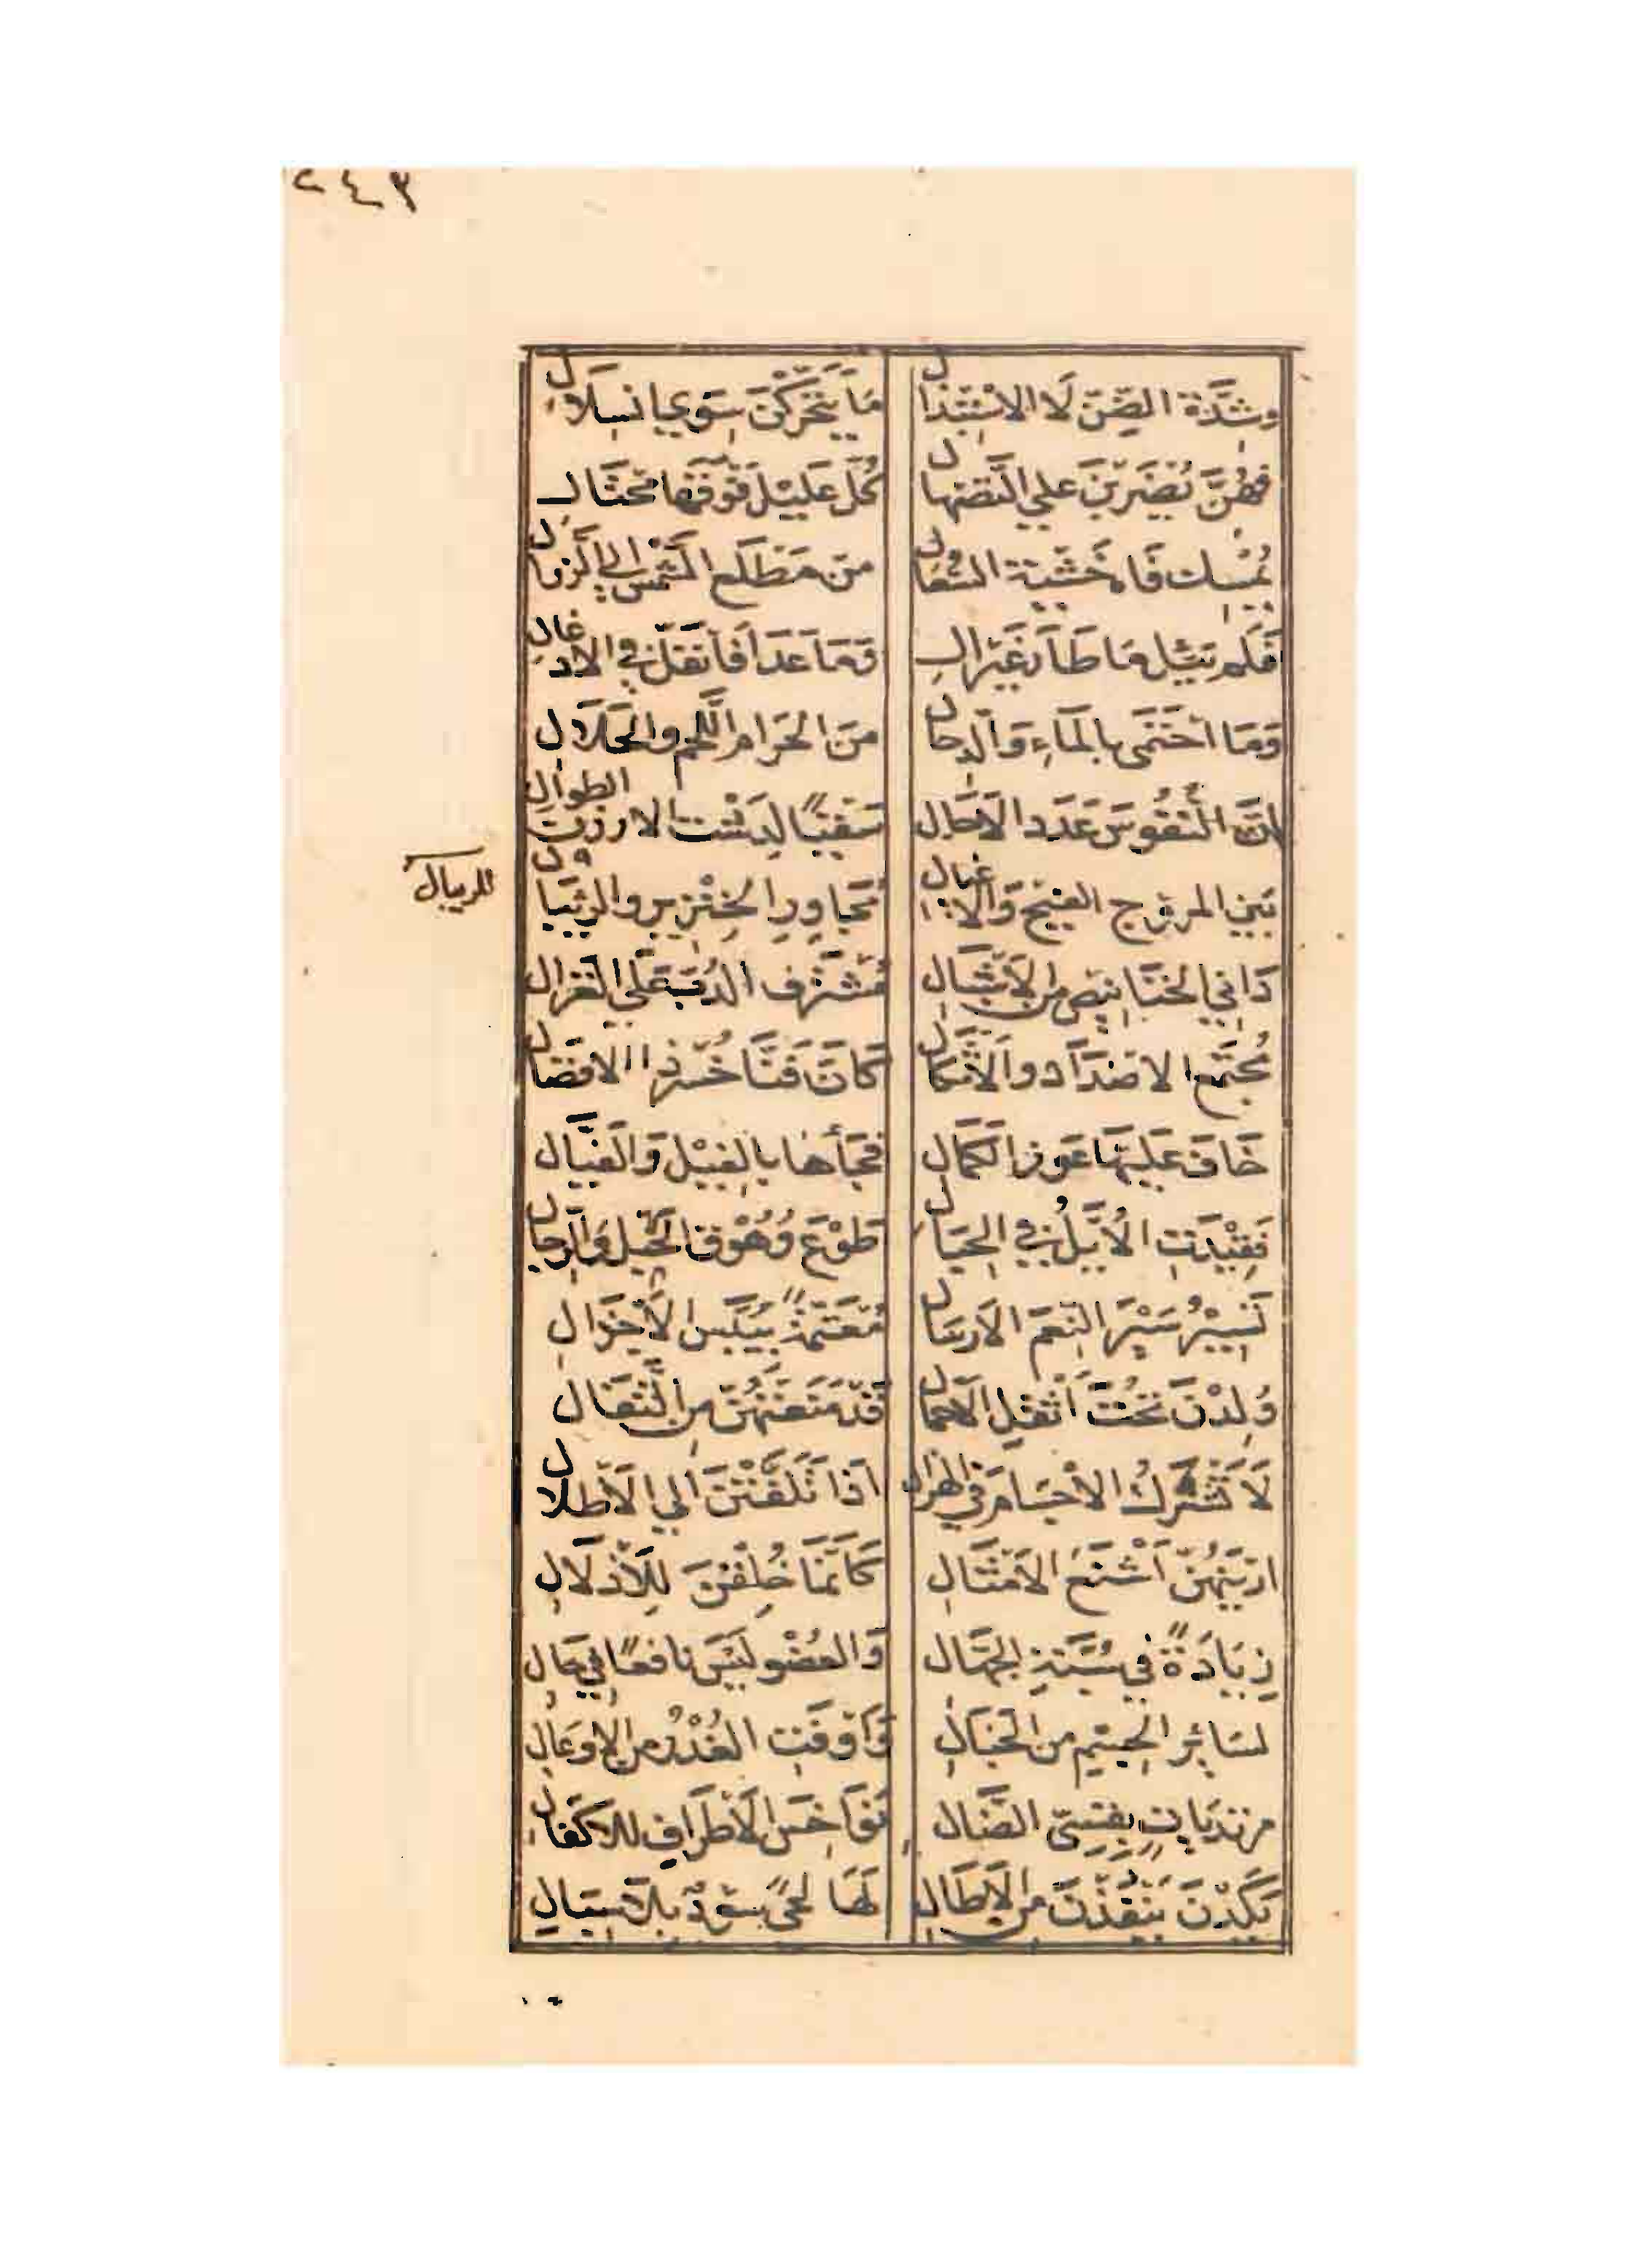 ٢٤٣
وشِدَّة الضِّنّ لَا الاسْتِبْذَال مَا يَتَحَرَّكْنَ سِوى انسِلَال
فهُنَّ يُضْرَبْنَ علي التَّصْهَال كُلُّ عَلِيْل فَوْقَهَا مُخْتَال
يُمْسِك فَاه خَشْيَة السُّعَال من مَطْلَع الشَّمْس الي الزَّوَال
فَلَم يَئِل مَا طَارَ غَيْرَ الِ وَمَا عَدَا فَانْغَلّ في الادغال
وَمَا احْتَمَى بالمَاءِ وَالدِحَال مِنَ الحَرَام اللَّحْم والحَلَالِ
اِنَّ النُّفُوسَ عَدَد الآجَال سَقْيًا لِدَشْت الارزن الطوال
بَيْنَ المروج الفِيْح وَالاغيال مُجَاوِرِ الخِنْزِير والرئبال
للريبال
دَانِي الخَنَانِيص مِن الأَشْبَالِ مُشْتَرِف الدُبّ عَلَى الغَزَال
مُجْتَمِع الاضْدَادِ والأَشْكَال كَانَّ فَنَّاخُسْرَ ذا الافضال
خَافَ عَلَيْهَا عَوزَ الكَمَال فَجَاْهَا بالفِيْل وَالفَيَّال
فَقِيْدَتِ الأُيَّلُ في الحِبَال طَوْعَ وُهُوْق الخَيْل وَالرِجَال
تَسِيْرُ سَيْرَ النَعَم الارسَال مُعْتَمَّةً بِيُبَّس الأَجْذَال
وُلِدْنَ تَحْتَ أَثْقَلِ الأَحْمَال قَدْ مَنَعَتْهُنّ مِن التَّفَال
لَا تَشْرَكُ الاجْسَام في الهزال اذَا تَلَفَّتْنَ الي الأَظْلَال
ارَيْنَهُنّ أَشْنَعَ الأَمْثَالِ كَانَّمَا خُلِقْنَ لِلأِذْلَالِ
زِيَادَةً في سُبَّةِ الجُهَّال وَالعُضْو لَيْسَ نافعًا في حَال
لسَائِر الجِسْم من الخَبَالِ وَأَوْفَتِ الفُدْرُ من الاوعَالِ
مرتديَات بقِسِيّ الضَّال نَوَاخِسَ الأَطْرَافِ للأَكْفَال
يَكَدْنَ يَنْفُذْنَ من الآطَالِ لَهَا لِحًى سُوْدٌ بِلَا سِبَالِ